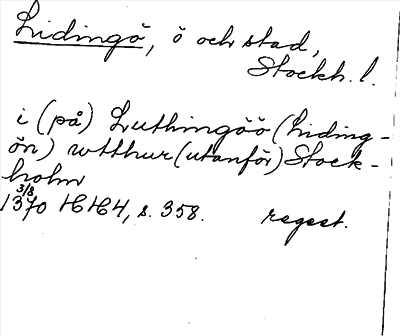 Lidingö, ö och stad,
Stockh. l.
i (på) Luthingöö (Liding-
ön) wtthur (utanför) Stock-
holm
3/8
1370 HH4, s. 358. regest.